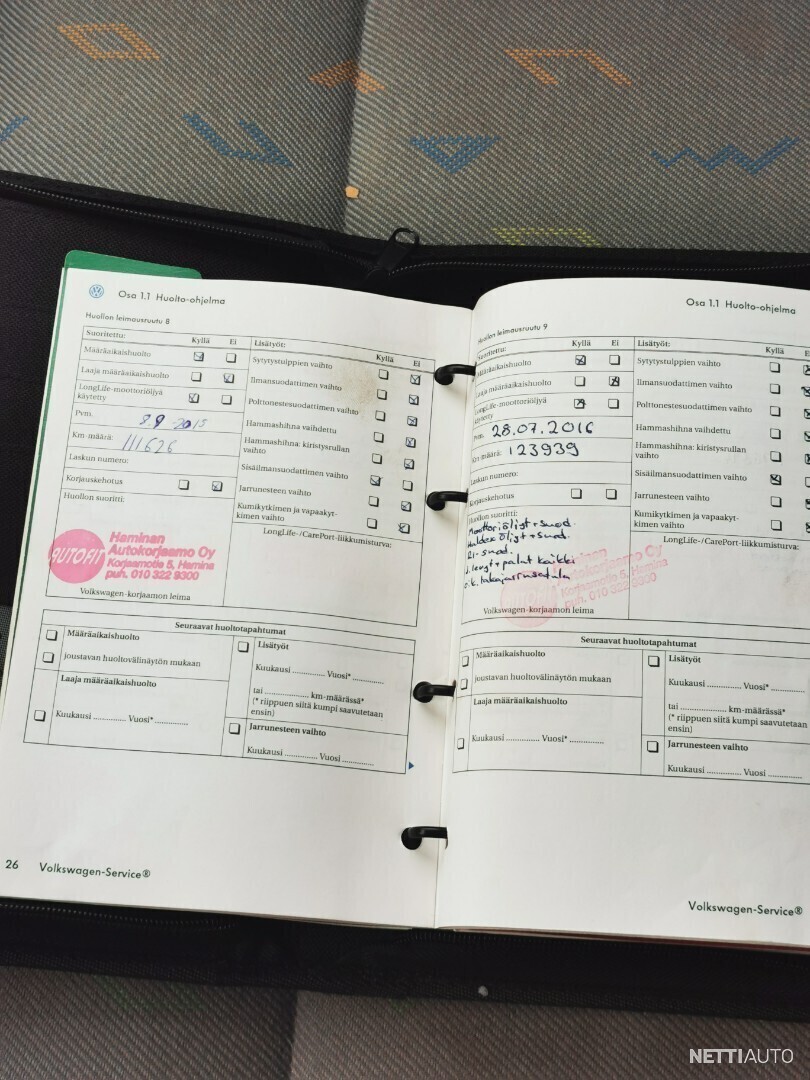 Osa 1.1 Huolto-ohjelma
Huollon leimausruutu 8
Suoritettu: Kyllä Ei
Määräaikaishuolto
Laaja määräaikaishuolto
LongLife-moottoriöljyä
käytetty
Pvm. 8.9 2015
Km-määrä: 111626
Laskun numero:
Korjauskehotus
Huollon suoritti:
AUTOFIT
Haminan
Autokorjaamo Oy
Korjaamotie 5, Hamina
puh. 010 322 9300
Volkswagen-korjaamon leima
Lisätyöt:
Kyllä Ei
Sytytystulppien vaihto
Ilmansuodattimen vaihto
Polttonestesuodattimen vaihto
Hammashihna vaihdettu
Hammashihna: kiristysrullan
vaihto
Sisäilmansuodattimen vaihto
Jarrunesteen vaihto
Kumikytkimen ja vapaakyt-
kimen vaihto
LongLife-/CarePort-liikkumisturva:
Seuraavat huoltotapahtumat
Määräaikaishuolto
joustavan huoltovälinäytön mukaan
Laaja määräaikaishuolto
Kuukausi .............. Vuosi* ..............
Lisätyöt
Kuukausi .............. Vuosi* ..............
tai .................. km-määrässä*
(* riippuen siitä kumpi saavutetaan
ensin)
Jarrunesteen vaihto
Kuukausi .............. Vuosi ..............
26 Volkswagen-Service®
Osa 1.1 Huolto-ohjelma
Huollon leimausruutu 9
Suoritettu: Kyllä Ei
Määräaikaishuolto
Laaja määräaikaishuolto
LongLife-moottoriöljyä
käytetty
Pvm. 28.07.2016
Km-määrä: 123939
Laskun numero:
Korjauskehotus
Huollon suoritti:
Moottoriöljyt+suod.
Haldex öljyt+suod.
RI-suod.
j. levyt+palat kaikki
o.k. takajarrusatula
Haminan
Autokorjaamo Oy
Korjaamotie 5, Hamina
puh. 010 322 9300
Volkswagen-korjaamon leima
Lisätyöt:
Kyllä
Sytytystulppien vaihto
Ilmansuodattimen vaihto
Polttonestesuodattimen vaihto
Hammashihna vaihdettu
Hammashihna: kiristysrullan
vaihto
Sisäilmansuodattimen vaihto
Jarrunesteen vaihto
Kumikytkimen ja vapaakyt-
kimen vaihto
LongLife-/CarePort-liikkumisturva:
Seuraavat huoltotapahtumat
Määräaikaishuolto
joustavan huoltovälinäytön mukaan
Laaja määräaikaishuolto
Kuukausi .............. Vuosi* ..............
Lisätyöt
Kuukausi .............. Vuosi* ..............
tai .................. km-määrässä*
(* riippuen siitä kumpi saavutetaan
ensin)
Jarrunesteen vaihto
Kuukausi .............. Vuosi ..............
Volkswagen-Service®
NETTIAUTO